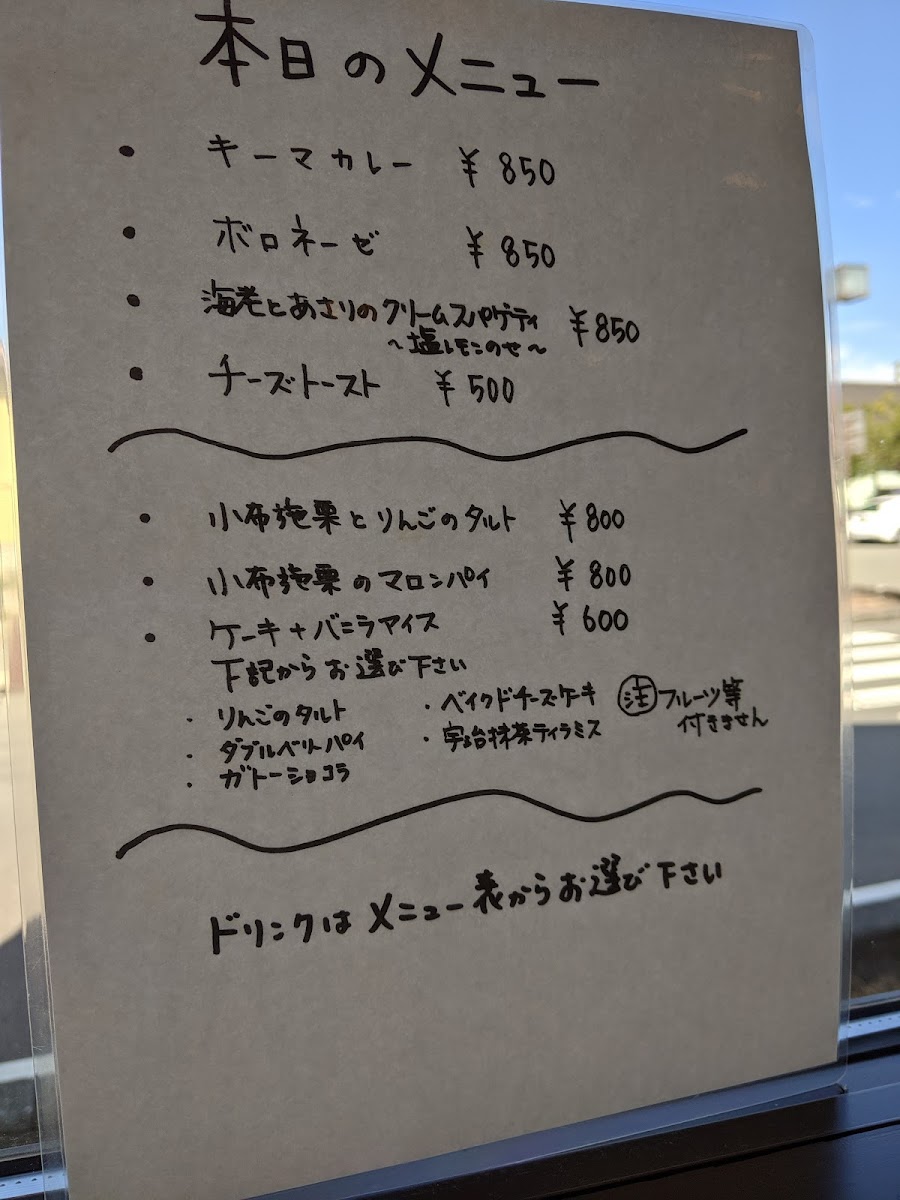 本日のメニュー
・ キーマカレー ¥850
・ ボロネーゼ ¥850
・ 海老とあさりのクリームスパゲティ ¥850
~塩レモンのせ~
・ チーズトースト ¥500
・ 小布施栗とりんごのタルト ¥800
・ 小布施栗のマロンパイ ¥800
・ ケーキ+バニラアイス ¥600
下記からお選び下さい
・りんごのタルト
・ダブルベリーパイ
・ガトーショコラ
・ベイクドチーズケーキ
・宇治抹茶ティラミス
㊟フルーツ等
付きません
ドリンクはメニュー表からお選び下さい